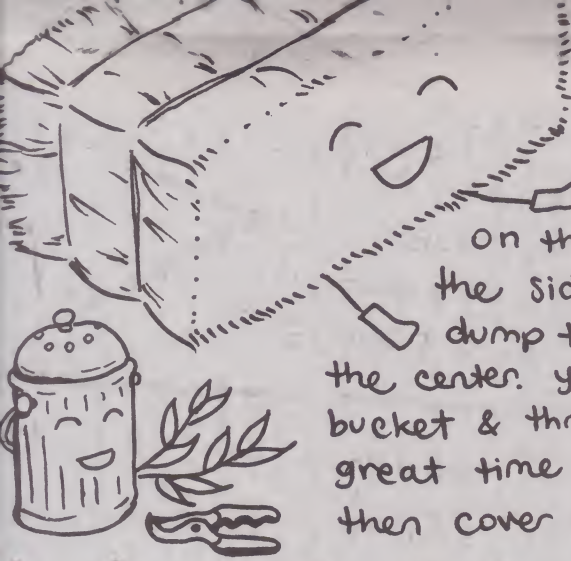 on th
the sid
dump t
the center. y
bucket & thr
great time
then cover